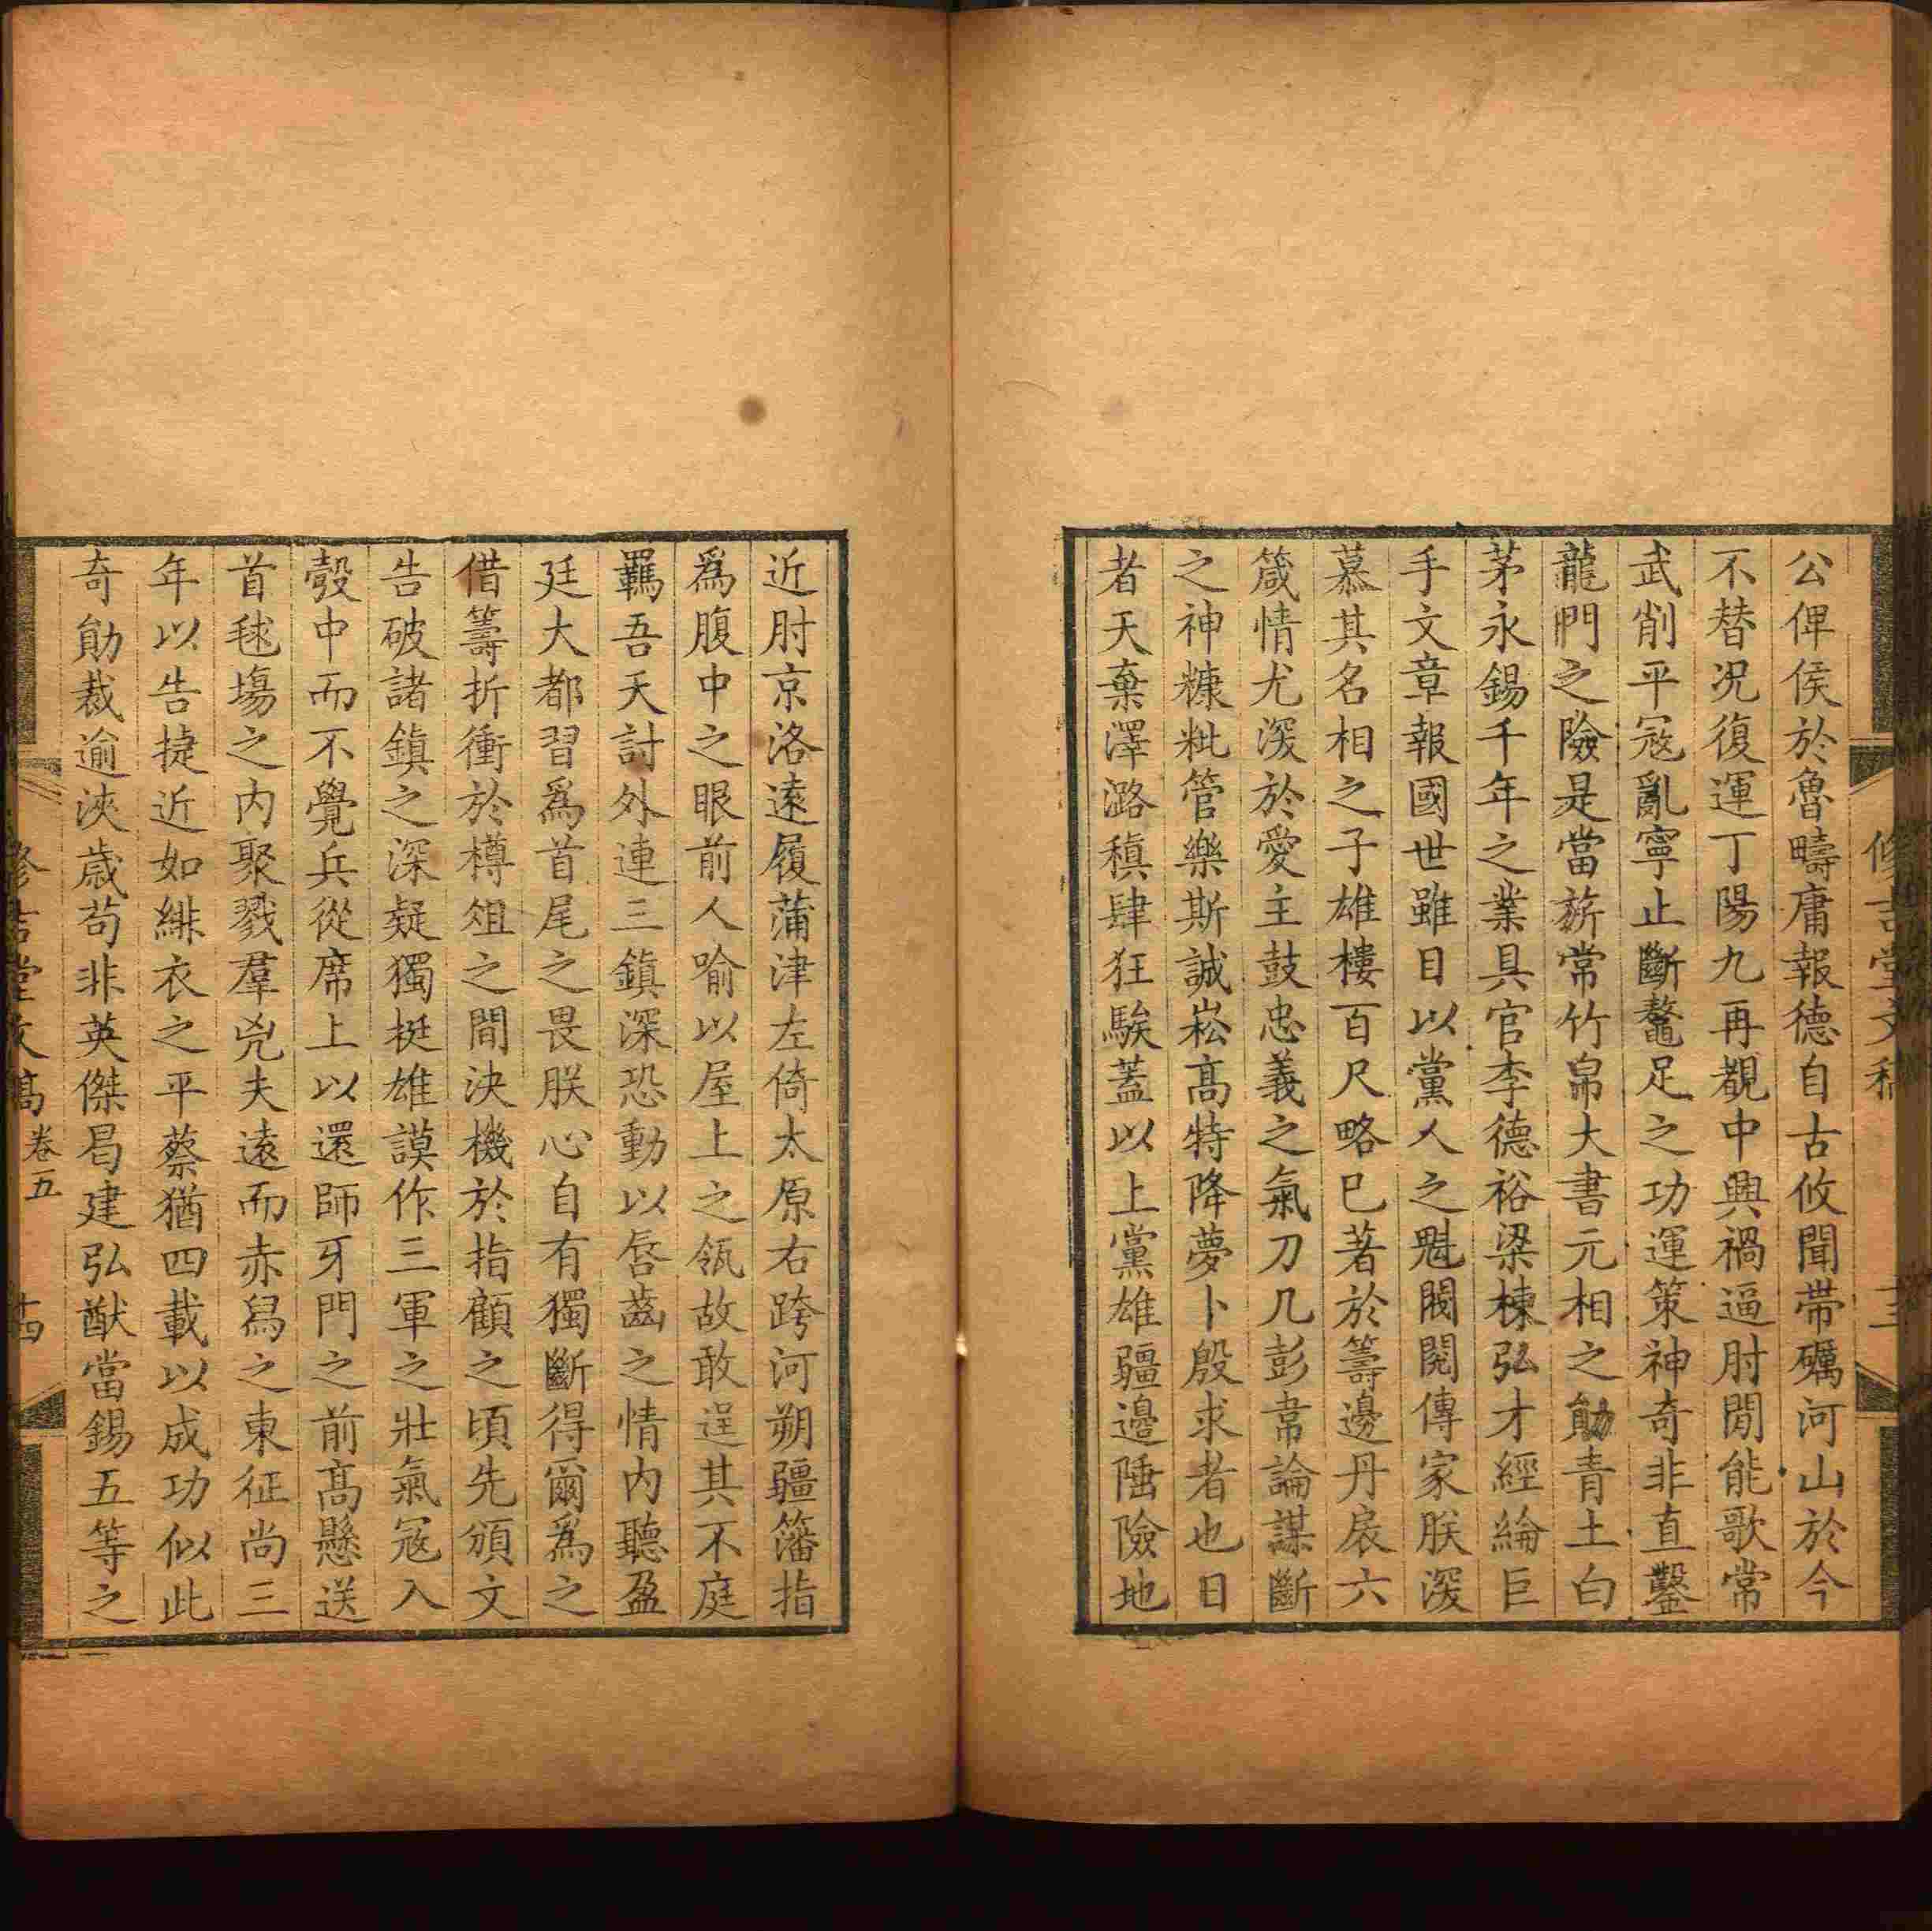 公俾侯於魯疇庸報德自古攸聞帶礪河山於今
不替況復運丁陽九再覩中興禍逼肘閒能歌常
武削平寇亂寧止斷鼇足之功運策神奇非直鑿
龍門之險是當旂常竹帛大書元相之勛青土白
茅永錫千年之業具官李德裕梁棟弘才經綸巨
手文章報國世雖目以黨人之魁閥閱傳家朕深
慕其名相之子雄樓百尺略已著於籌邊丹扆六
箴情尤深於愛主鼓忠義之氣刀几彭韋論謀斷
之神糠粃管樂斯誠崧高特降夢卜殷求者也日
者天棄澤潞稹肆狂騃蓋以上黨雄疆邊陲險地
近肘京洛遠履蒲津左倚太原右跨河朔疆籓指
爲腹中之眼前人喻以屋上之瓴故敢逞其不庭
羈吾天討外連三鎮深恐動以唇齒之情內聽盈
廷大都習爲首尾之畏朕心自有獨斷得爾爲之
借籌折衝於樽俎之間決機於指顧之頃先頒文
告破諸鎮之深疑獨挺雄謨作三軍之壯氣寇入
彀中而不覺兵從席上以還師牙門之前高懸送
首毬場之內聚戮羣兇夫遠而赤舄之東征尚三
年以告捷近如緋衣之平蔡猶四載以成功似此
奇勛裁逾浹歲苟非英傑曷建弘猷當錫五等之
卷五
十四